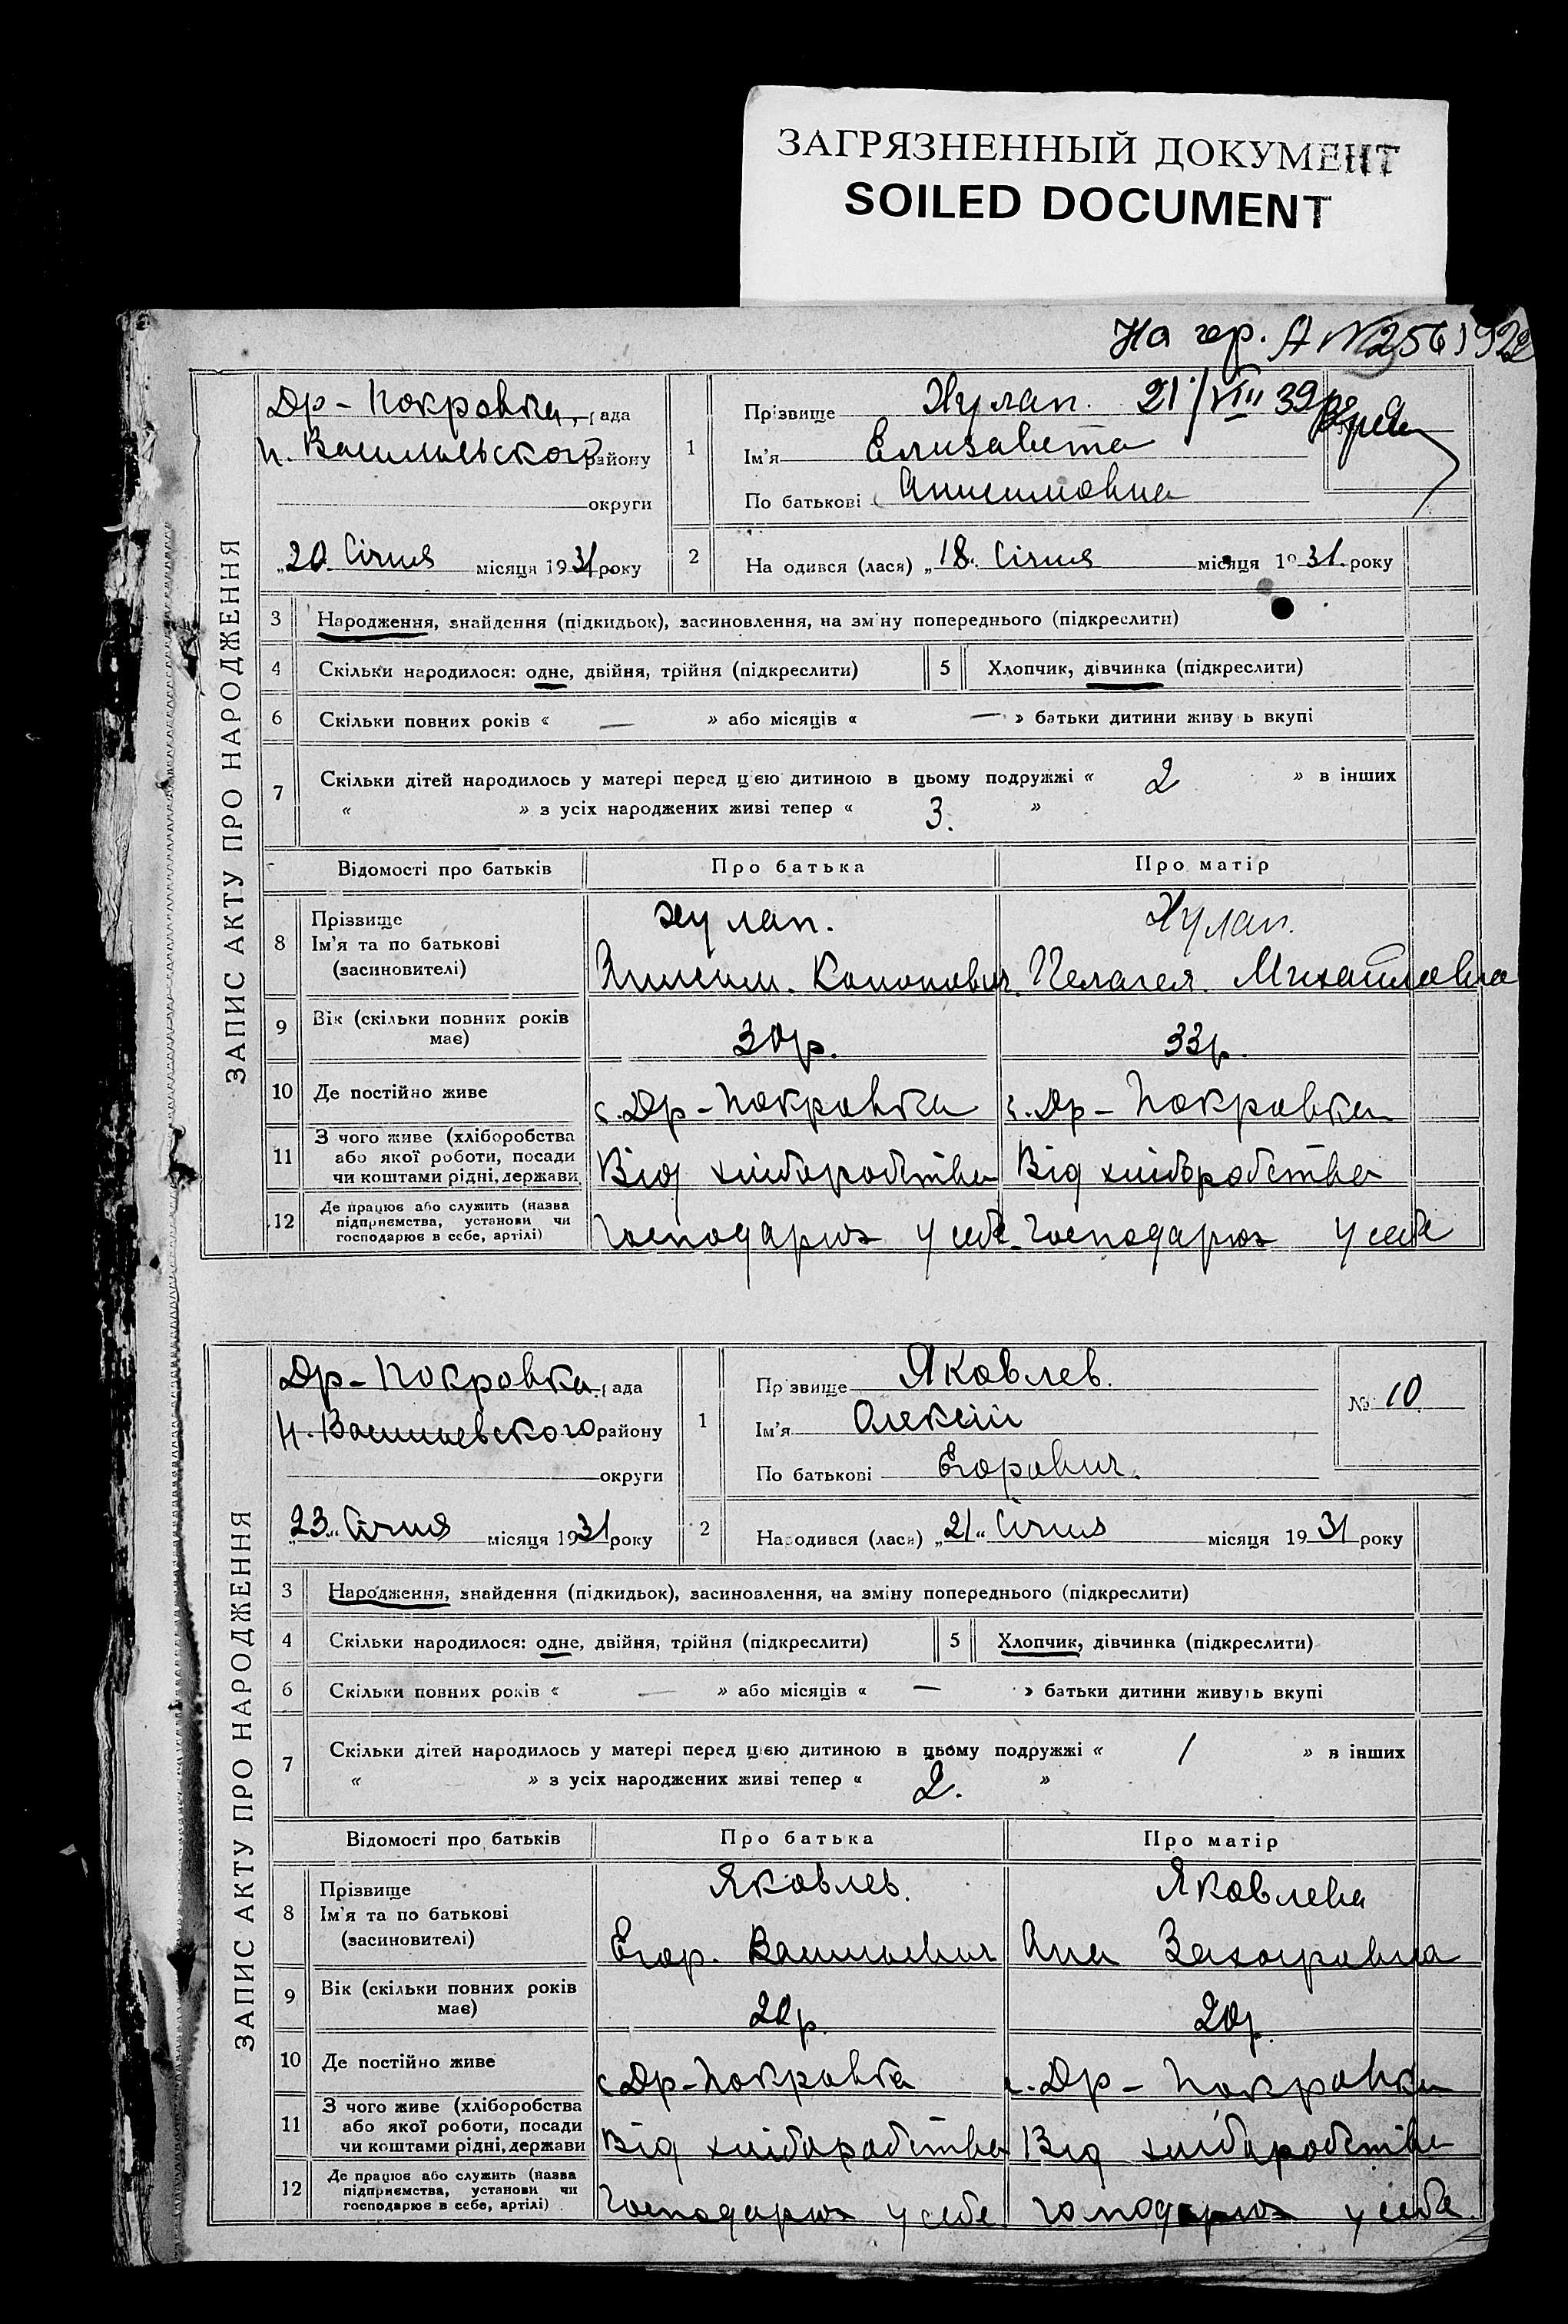 ЗАГРЯЗНЕННЫЙ ДОКУМЕНТ
SOILED DOCUMENT
На гер. А № 256
ЗАПИС АКТУ ПРО НАРОДЖЕННЯ
Др-Покровка, рада
Н. Васильевского району
округи
„20„ Січня місяця 1931 року
1
Прізвище Хулап. 21/VIII 39р
Ім'я Елизавета
По батькові Анисимовна
2 На одився (лася) „18„ Січня місяця 1931 року
3 Народження, знайдення (підкидьок), засиновлення, на зміну попереднього (підкреслити)
4 Скільки народилося: одне, двійня, трійня (підкреслити) 5 Хлопчик, дівчинка (підкреслити)
6 Скільки повних років « — » або місяців « — » батьки дитини живу ь вкупі
7 Скільки дітей народилось у матері перед цією дитиною в цьому подружжі « 2 » в інших
« » з усіх народжених живі тепер « 3. »
Відомості про батьків Про батька Про матір
8 Прізвище Хулап. Хулап.
Ім'я та по батькові
(засиновителі) Анисим. Кононович. Пелагея. Михайловна
9 Вік (скільки повних років має) 30р. 33р.
10 Де постійно живе с. Др-Покровка с. Др-Покровка
11 З чого живе (хліборобства
або якої роботи, посади
чи коштами рідні, держави Від хліборобства Від хліборобства
12 Де працює або служить (назва
підприємства, установи чи
господарює в себе, артілі) Господарює у себе. Господарює у себе
ЗАПИС АКТУ ПРО НАРОДЖЕННЯ
Др-Покровка. рада
Н. Васильевского району
округи
„23„ Січня місяця 1931 року
1
Прізвище Яковлев. № 10
Ім'я Олексій
По батькові Егорович.
2 Народився (лася) „21„ Січня місяця 1931 року
3 Народження, знайдення (підкидьок), засиновлення, на зміну попереднього (підкреслити)
4 Скільки народилося: одне, двійня, трійня (підкреслити) 5 Хлопчик, дівчинка (підкреслити)
6 Скільки повних років « — » або місяців « — » батьки дитини живуть вкупі
7 Скільки дітей народилось у матері перед цією дитиною в цьому подружжі « 1 » в інших
« » з усіх народжених живі тепер « 2. »
Відомості про батьків Про батька Про матір
8 Прізвище Яковлев. Яковлева
Ім'я та по батькові
(засиновителі) Егор. Васильевич Ана Захаровна
9 Вік (скільки повних років має) 20р. 20р.
10 Де постійно живе с. Др-Покровка с. Др-Покровка
11 З чого живе (хліборобства
або якої роботи, посади
чи коштами рідні, держави Від хліборобства Від хліборобства
12 Де працює або служить (назва
підприємства, установи чи
господарює в себе, артілі) Господарює у себе. Господарює у себе.